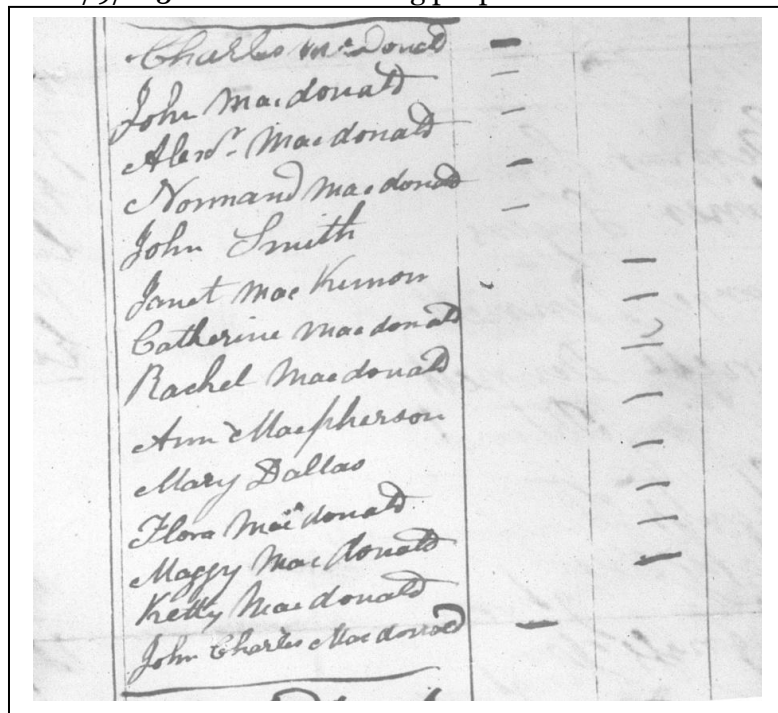 Charles McDonald
John Macdonald
Alexr. Macdonald
Normand Macdonald
John Smith
Janet MacKinnon
Catherine Macdonald
Rachel Macdonald
Ann Macpherson
Mary Dallas
Flora Macdonald
Maggy Macdonald
Ketty Macdonald
John Charles Macdonald